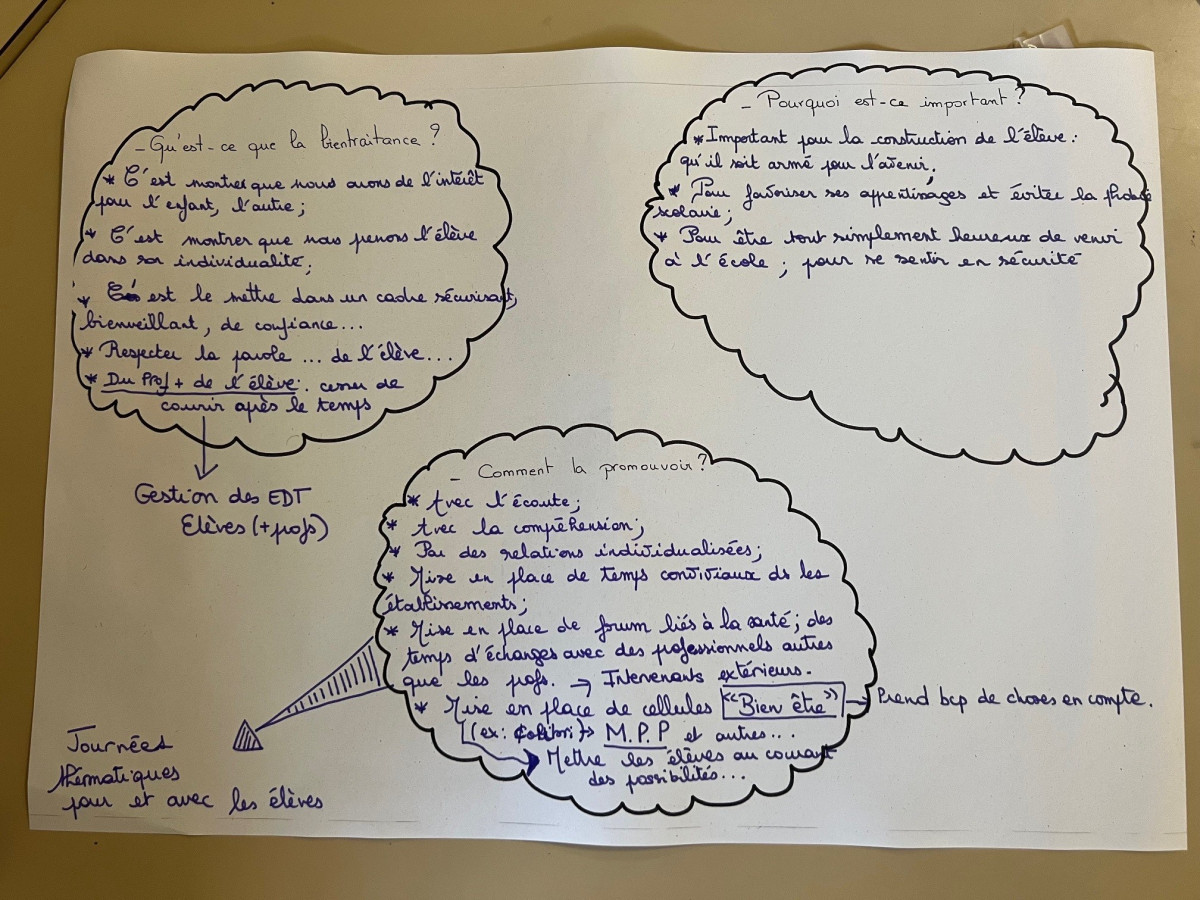 - Qu'est-ce que la bientraitance ?
* C'est montrer que nous avons de l'intérêt
pour l'enfant, l'autre ;
* C'est montrer que nous prenons l'élève
dans son individualité ;
* C'est le mettre dans un cadre sécurisant,
bienveillant, de confiance...
* Respecter la parole ... de l'élève...
* Du Prof + de l'élève : cesser de
courir après le temps
Gestion des EDT
Elèves (+ profs)
- Pourquoi est-ce important ?
* Important pour la construction de l'élève :
qu'il soit armé pour l'avenir ;
* Pour favoriser ses apprentissages et éviter la phobie
scolaire ;
* Pour être tout simplement heureux de venir
à l'école ; pour se sentir en sécurité
- Comment la promouvoir ?
* Avec l'écoute ;
* Avec la compréhension ;
* Par des relations individualisées ;
* Mise en place de temps conviviaux ds les
établissements ;
* Mise en place de forum liés à la santé ; des
temps d'échanges avec des professionnels autres
que les profs. → Intervenants extérieurs.
* Mise en place de cellules "Bien être" → Prend bcp de choses en compte.
(ex : Colibri) → M.P.P et autres...
Mettre les élèves au courant
des possibilités...
Journées
thématiques
pour et avec les élèves